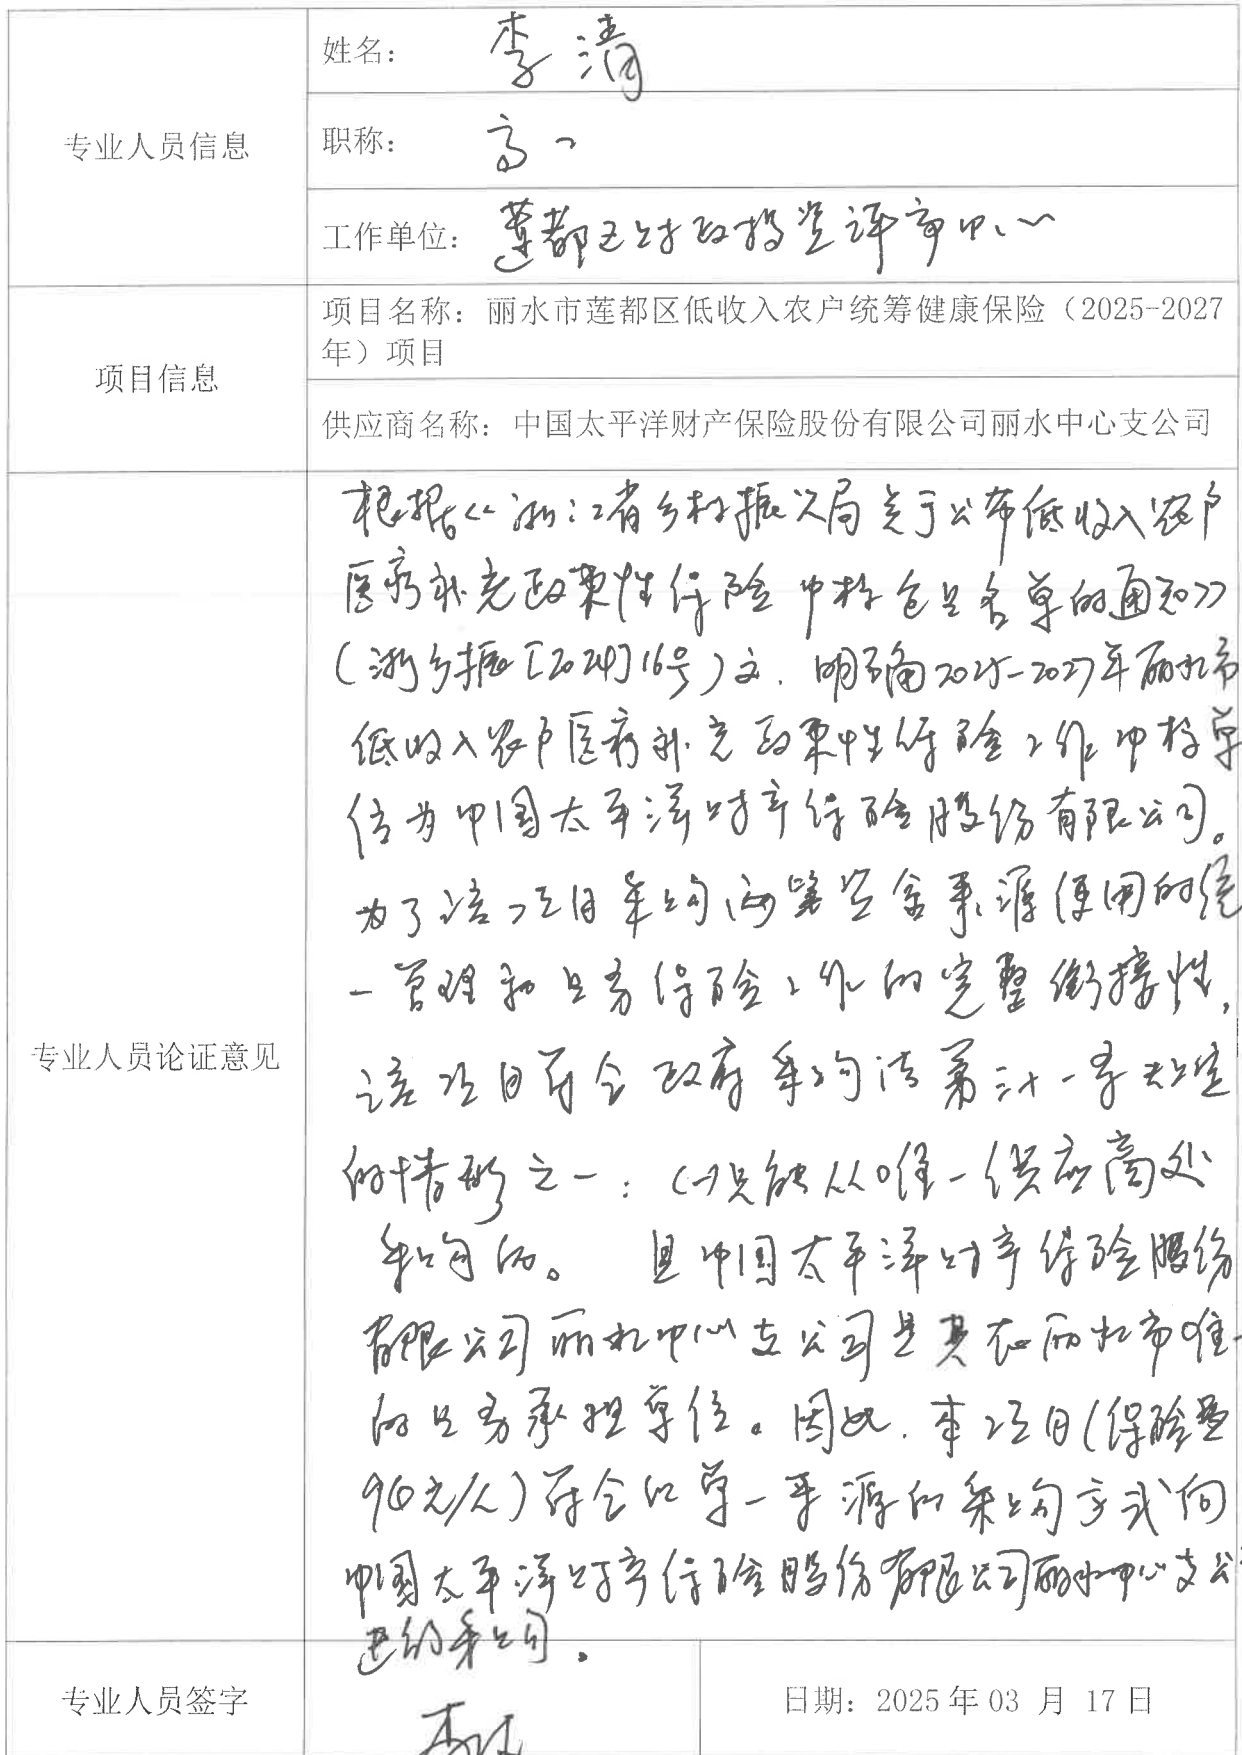 专业人员信息
姓名： 李清
职称： 高
工作单位： 莲都区财政投资评审中心
项目信息
项目名称：丽水市莲都区低收入农户统筹健康保险（2025-2027
年）项目
供应商名称：中国太平洋财产保险股份有限公司丽水中心支公司
专业人员论证意见
根据《浙江省乡村振兴局关于公布低收入农户
医疗补充政策性保险中标 名单的通知》
（浙乡振[2024]16号）文，明确2025-2027年丽水市
低收入农户医疗补充政策性保险工作中标单
位为中国太平洋财产保险股份有限公司。
为了该项目采购 资金来源使用的统
一管理和服务保险工作的完整衔接性，
该项目符合政府采购法第三十一条规定
的情形之一：（一）只能从唯一供应商处
采购的。 且中国太平洋财产保险股份
有限公司丽水中心支公司是其在丽水市唯一
的服务承担单位。因此，本项目（保险费
90元/人）符合以单一来源的采购方式向
中国太平洋财产保险股份有限公司丽水中心支公
进行采购。
专业人员签字
李清
日期：2025年03 月 17日